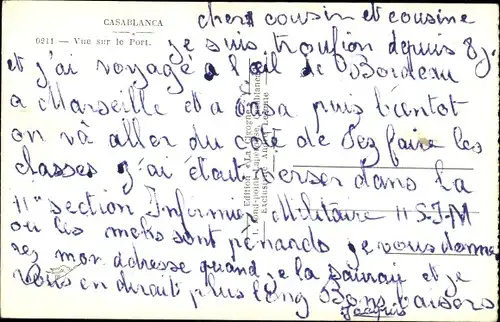 CASABLANCA
0211 - Vue sur le Port.
chers cousin et cousine
je suis troufion depuis 8j
et j'ai voyagé a l'oeil de Bordeau
a Marseille et a Casa puis bientot
on và aller du coté de Fez faire les
classes j'ai était verser dans la
11e section Infirmier Militaire 11 S.I.M
ou les mets sont penards je vous donne
rez mon adresse quand je la saurai et je
vous en dirait plus long Bons baisers
Jacques
Edition "La Cigogne"